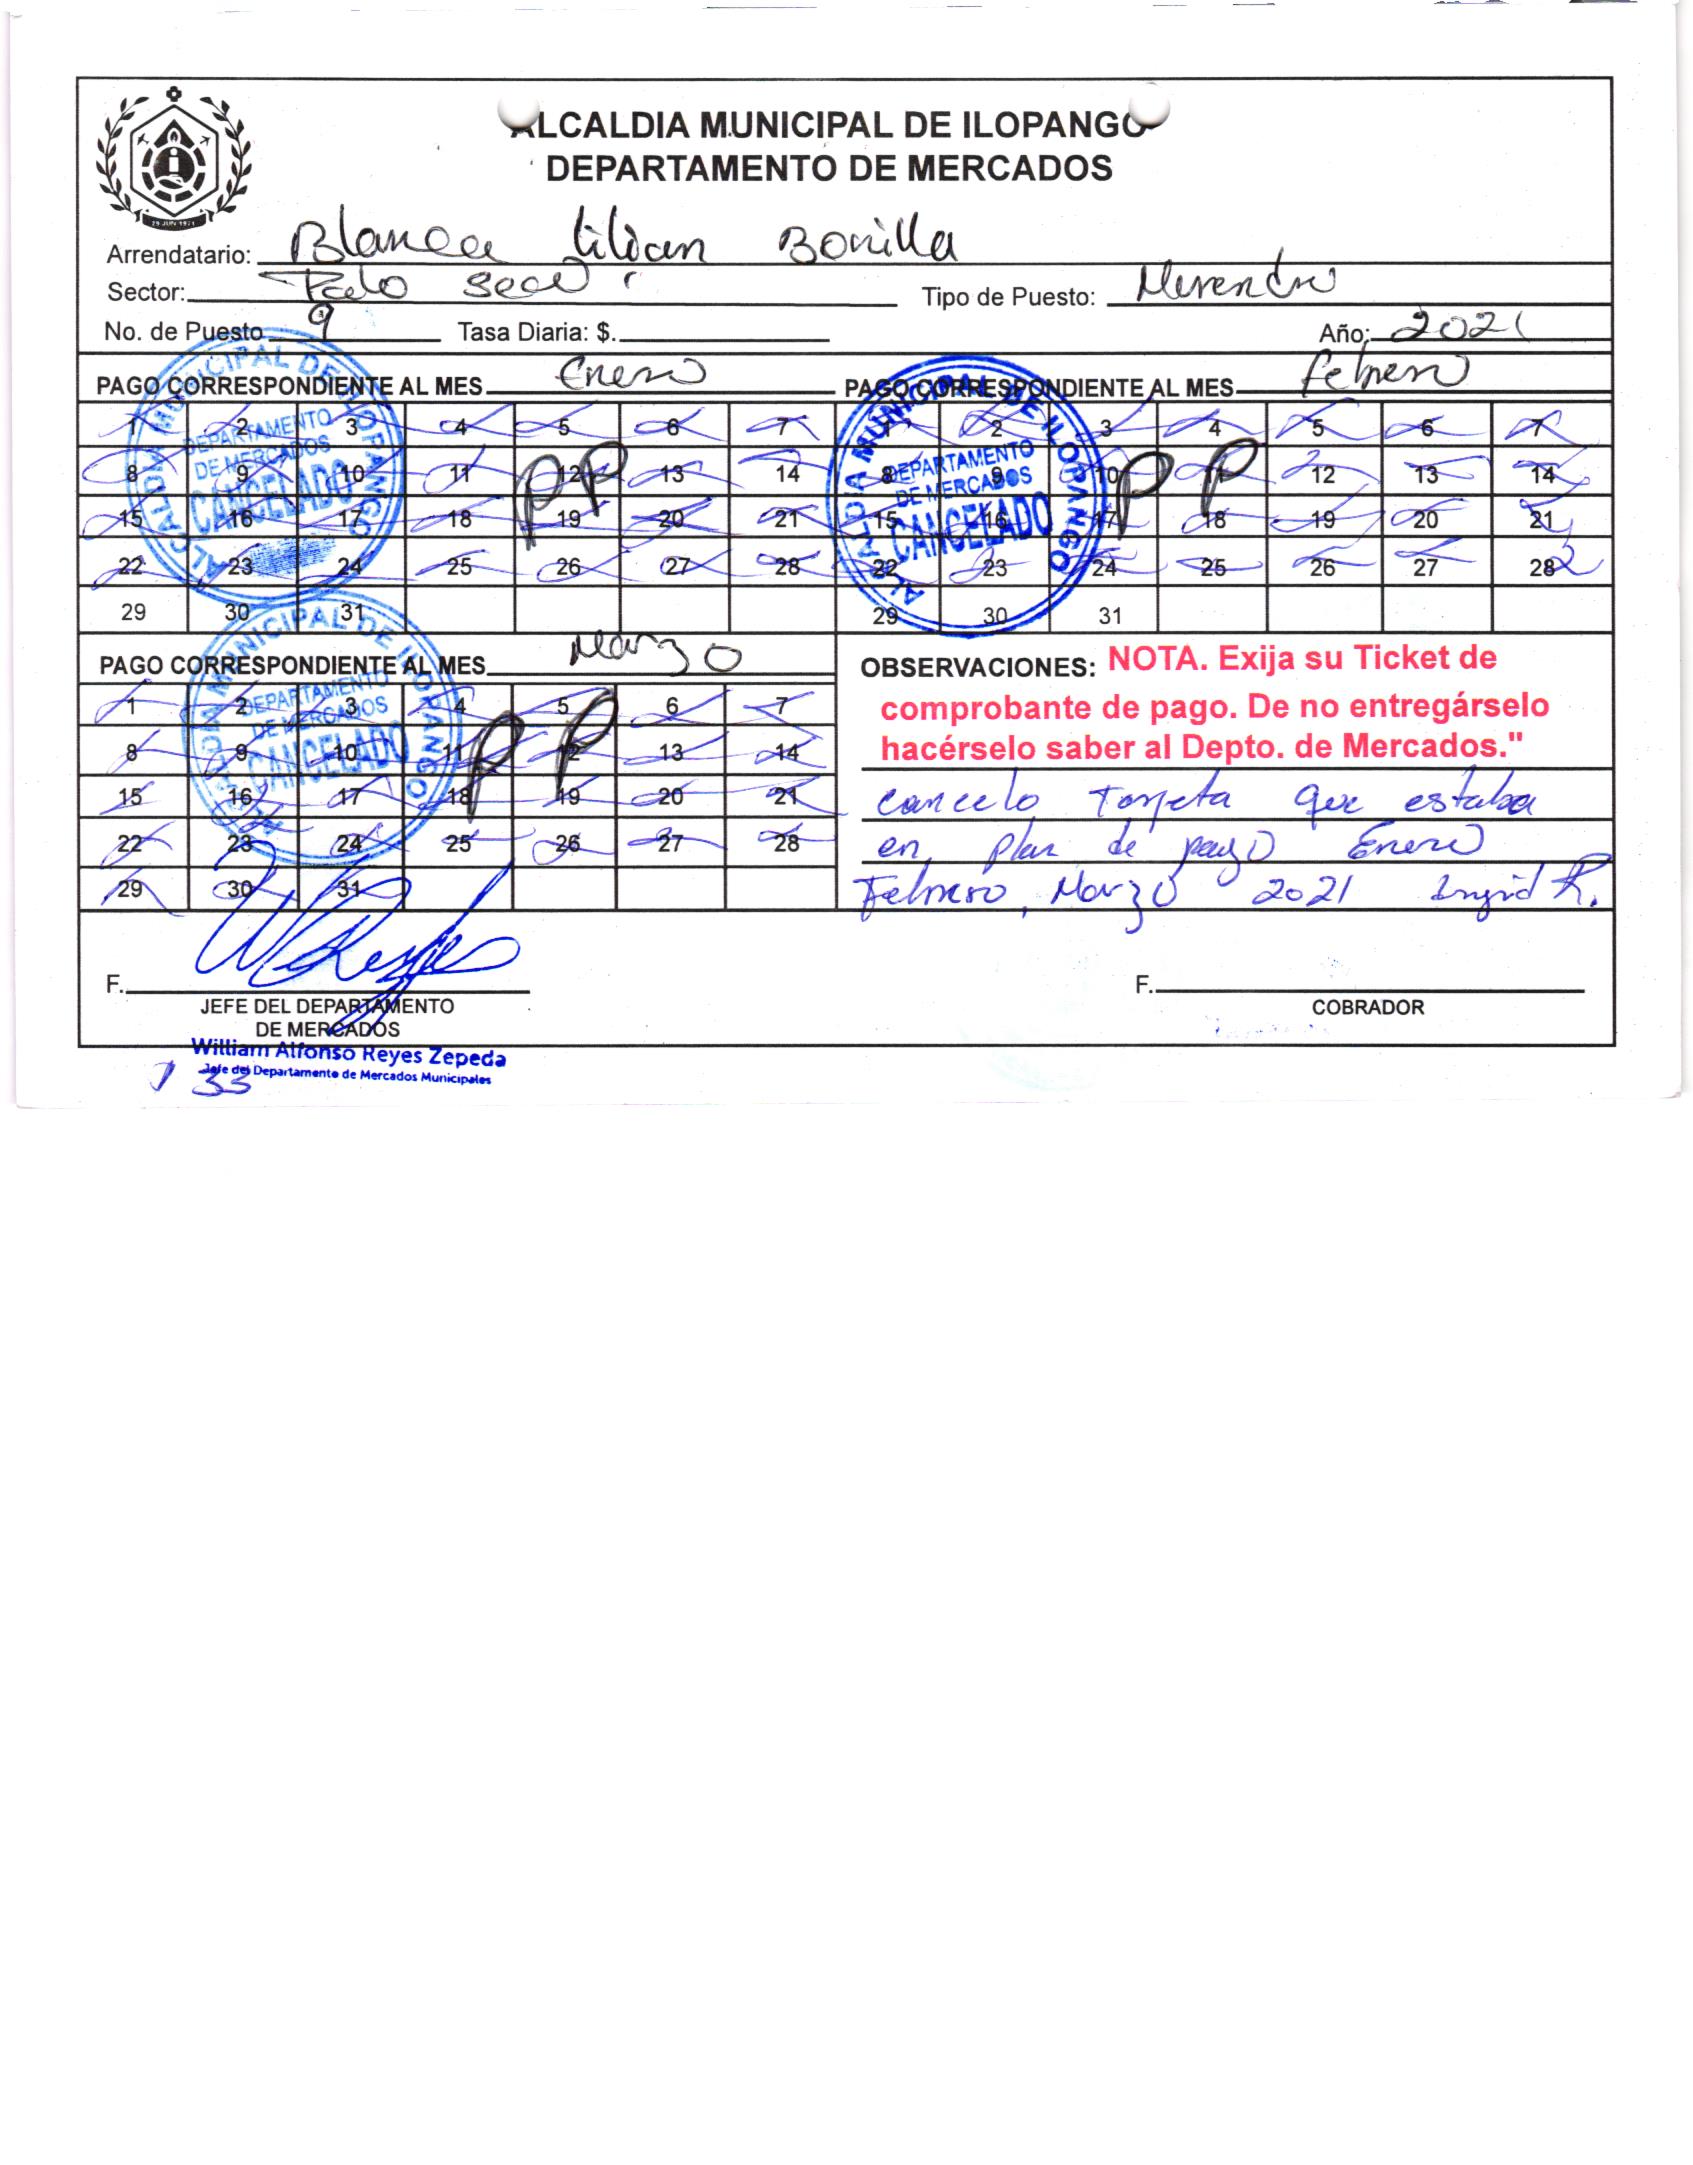 ALCALDIA MUNICIPAL DE ILOPANGO
DEPARTAMENTO DE MERCADOS
29 JUN 1971
Arrendatario: Blanca Lilian Bonilla
Sector: Palo Seco
Tipo de Puesto: Merendero
No. de Puesto 9 Tasa Diaria: $. Año: 2021
PAGO CORRESPONDIENTE AL MES Enero
1 2 3 4 5 6 7
8 9 10 11 12 13 14
15 16 17 18 19 20 21
22 23 24 25 26 27 28
29 30 31
PP
ALCALDIA MUNICIPAL DE ILOPANGO
DEPARTAMENTO
DE MERCADOS
CANCELADO
PAGO CORRESPONDIENTE AL MES Febrero
1 2 3 4 5 6 7
8 9 10 11 12 13 14
15 16 17 18 19 20 21
22 23 24 25 26 27 28
29 30 31
PP
ALCALDIA MUNICIPAL DE ILOPANGO
DEPARTAMENTO
DE MERCADOS
CANCELADO
PAGO CORRESPONDIENTE AL MES Marzo
1 2 3 4 5 6 7
8 9 10 11 12 13 14
15 16 17 18 19 20 21
22 23 24 25 26 27 28
29 30 31
PP
ALCALDIA MUNICIPAL DE ILOPANGO
DEPARTAMENTO
DE MERCADOS
CANCELADO
OBSERVACIONES: NOTA. Exija su Ticket de
comprobante de pago. De no entregárselo
hacérselo saber al Depto. de Mercados."
cancelo Tarjeta que estaba
en plan de pago Enero
Febrero, Marzo 2021 Ingrid R.
F.
JEFE DEL DEPARTAMENTO
DE MERCADOS
F.
COBRADOR
William Alfonso Reyes Zepeda
Jefe del Departamento de Mercados Municipales
33